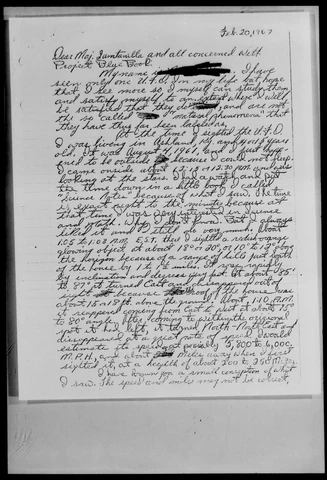 Feb. 20, 1967
Dear Maj. and all concerned with
Project Blue Book:
My name is I have
seen only one U.F.O. in my life but hope
that I see more so I myself can study them
and satisfy myself to an extent where I will
be satisfied that they do exist, and are not
the so called "natural phenomena" that
they have thus far been labeled as.
At the time I sighted the U.F.O.
I was living in Ashland, and 14 years
old. It was August of 1961, and I just happ-
ened to be outside because I could not sleep.
I came outside about 12:15 or 12:30 A.M. and was
looking at the stars. I had a watch and put
the time down in a little book I called
"Science Notes" because of what I saw. The time
is exact right to the minute because at
that time I was very interested in science
and math. Why I don't know. But I always
liked it and I still do very much. About
1:05 to 1:08 A.M. E.S.T. that I sighted a reddish orange
glowing object at about 18° to 20° or 10° to 12° above
the horizon because of a range of hills just south
of the house by 1 to 1½ miles. It rose rapidly
by inclination and degrees very fast. At about 85°
to 87° it turned East and disappeared out of
sight because roof of the house was
about 15 or 18 ft. above the ground. About 1:10 A.M.
it reappered coming from East to West at about 80°
to 90° again. After coming to within the original
spot it had left, it turned North-Northeast and
disappeared at a great rate of speed. I would
estimate its speed at probably 3,800 to 4,000
M.P.H., and about 2 miles away when I first
sighted it, at a heighth of about 200 to 250
I have drawn you a small conception of what
I saw. The speed and miles may not be correct,